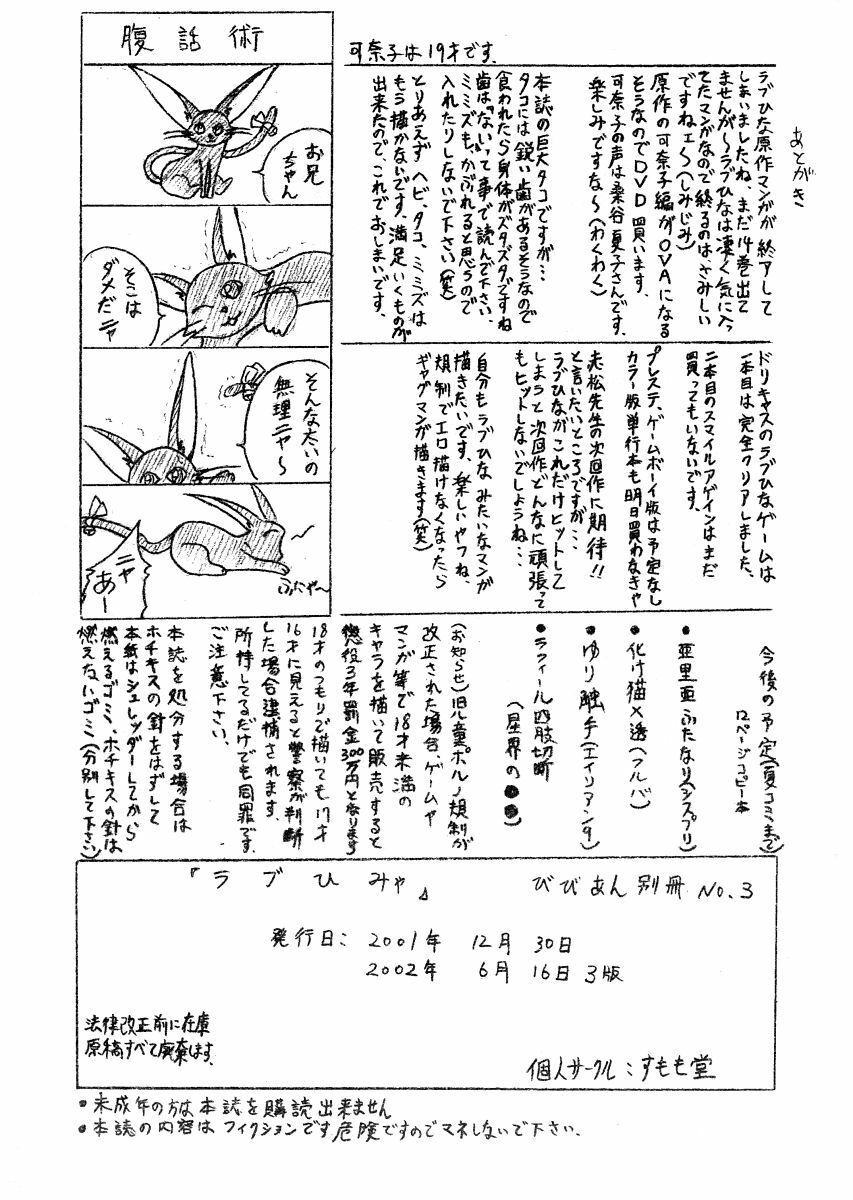 あとがき
ラブひな原作マンガが終アして
しまいましたね、まだ14巻出て
ませんが〜ラブひなは凄く気に入っ
てたマンガなので終るのは、さみしい
ですねェ〜(しみじみ)
原作の可奈子編がOVAになる
そうなのでDVD買います、
可奈子の声は桑谷夏子さんです、
楽しみですな〜(わくわく)
本誌の巨大タコですが…
タコには鋭い歯があるそうなので
食われたら身体がズタズタですね
歯は「ない」って事で読んで下さい、
ミミズも、かぶれると思うので
入れたりしないで下さい(笑)
とりあえずヘビ、タコ、ミミズは
もう描かないです、満足いくものが
出来たので、これでおしまいです、
可奈子は19才です、
腹話術
お兄
ちゃん
そこは
ダメだニャ
そんな太いの
無理ニャ〜
ニャ
あー
ふにゃ〜
ドリキャスのラブひなゲームは
一本目は完全クリアしました、
二本目のスマイルアゲインはまだ
買ってもいないです、
プレステ、ゲームボーイ版は予定なし
カラー版単行本も明日買わなきゃ
赤松先生の次回作に期待!!
と言いたいところですが…
ラブひながこれだけヒットして
しまうと次回作どんなに頑張って
もヒットしないでしょうね…
自分もラブひなみたいなマンガ
描きたいです、楽しいやつね、
規制でエロ描けなくなったら
ギャグマンガ描きます(笑)
今後の予定(夏コミまで)
12ページコピー本
●亜里亜ふたなり(シスプリ)
●化け猫×透(フルバ)
●ゆり触手(エイリアン9)
●ラフィール四肢切断
(星界の●●)
(お知らせ)旧児童ポルノ規制が
改正された場合、ゲームや
マンガ等で18才未満の
キャラを描いて販売すると
懲役3年罰金300万円となります
18才のつもりで描いても17才
16才に見えると警察が判断
した場合逮捕されます、
所持してるだけでも同罪です、
ご注意下さい、
本誌を処分する場合は
ホチキスの針をはずして
本紙はシュレッダーしてから
燃えるゴミ、ホチキスの針は
燃えないゴミ(分別して下さい)
『ラブひみゃ』 びびあん別冊 No.3
発行日: 2001年 12月 30日
2002年 6月 16日 3版
法律改正前に在庫
原稿すべて廃棄します、
個人サークル:すもも堂
●未成年の方は本誌を購読出来ません
●本誌の内容はフィクションです危険ですのでマネしないで下さい、